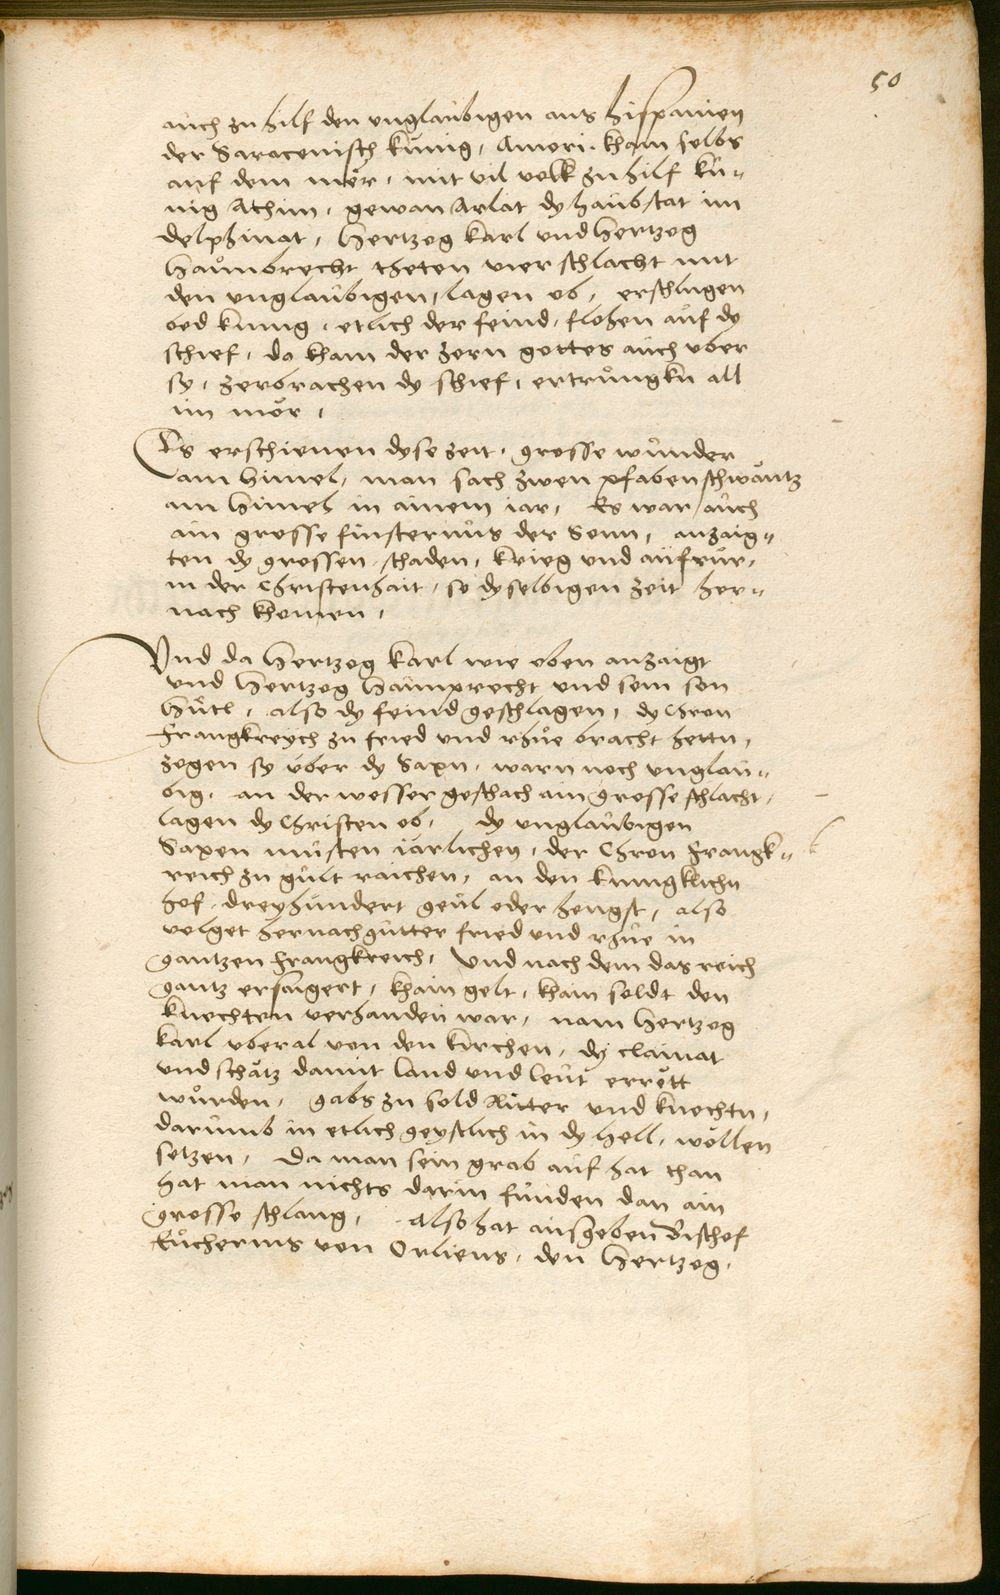 50
auch zu hilf den unglaubigen aus hispanien
der Saracenisch kunig, Ameri. kham selbs
auf dem mer, mit vil volk zu hilf ku„
nig Athim, gewan Arlat dy haubstat im
delphinat, Hertzog Karl und Hertzog
Haumbrecht theten vier schlacht mit
den unglaubigen, lagen ob, erschlugen
bed kunig, etlich der feind, flohen auf dy
schief, da kham der zorn gottes auch uber
sy, zerbrachen dy schief, ertrungkn all
im mör,
Es erschienen dyse zeit, grosse wunder
am himel, man sach zwen pfabenschwäntz
am himel in ainem iar, Es war auch
ain grosse finsternus der Sonn, anzaig„
ten dy grossen schaden, krieg und aufrur,
in der Christenhait, so dyselbigen zeit her„
nach khomen,
Und da Hertzog Karl wie oben anzaigt
und Hertzog Haumprecht und sein son
Hütl, also dy feind geschlagen, dy Chron
Frangkreych zu fried und rhue bracht hettn,
zogen sy uber dy Saxn, warn noch unglau„
big, an der wesser geschach ain grosse schlacht,
lagen dy Christen ob, dy unglaubigen
Saxen musten iarlichen, der Chron Frangk„
reich zu gult raichen, an den kunigklichn
hof dreyhundert geul oder hengst, also
volget hernach gutter fried und rhue in
gantzen Frangkreich, Und nach dem das reich
gantz ersaigert, khain gelt, khain soldt den
knechten verhanden war, nam Hertzog
Karl uberal von den kirchen, dy clainat
und schätz damit land und leut errett
wurden, gabs zu sold Ritter und knechtn,
darumb in etlich geystlich in dy hell, wöllen
setzen, Da man sein grab auf hat than
hat man nichts darin funden dan ain
grosse schlang, Also hat ausgeben Bischof
Eucherius von Orliens, den Hertzog,